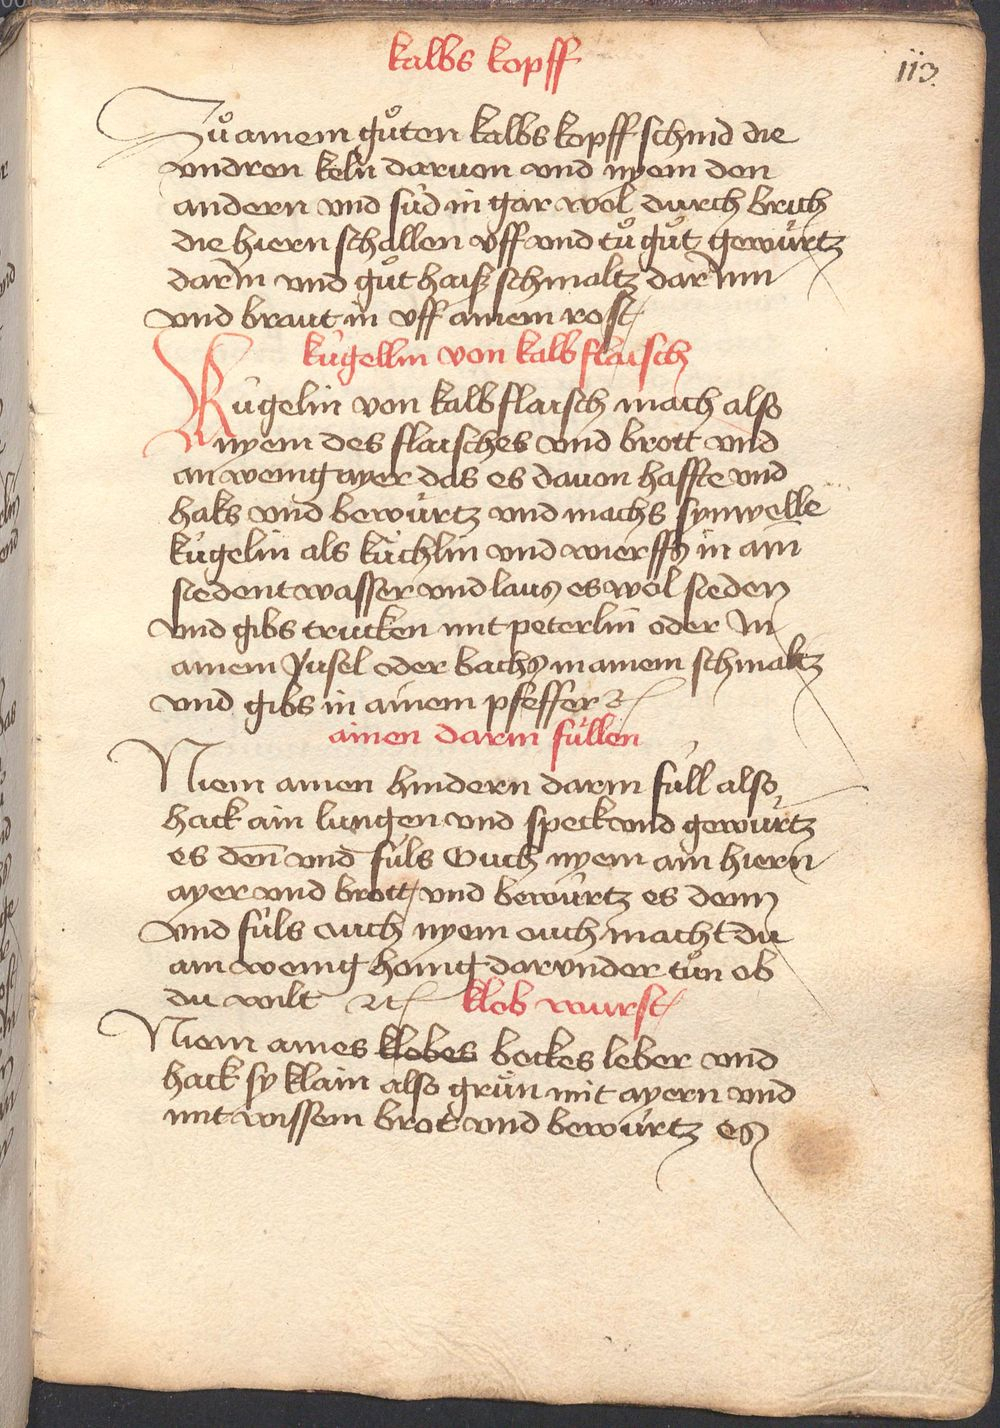 kalbs kopff
113
Zů ainem gůten kalbs kopff schind die
vndren keln daruon vnd nyem den
andern vnd süd in gar wol durch brich
die hiern schallen vff vnd tů gůtz gewürtz
darin vnd gůt haiß schmaltz dar Inn
vnd braut in vff ainem rost
kügellin von kalbflaisch
Kügelin von kalbflaisch mach also
nyem des flaisches vnd brott vnd
ain wenig ayer das es dauon haffte vnd
haks vnd bewürtz vnd machs synwelle
kügelin als küchlin vnd wierffs in ain
siedent wasser vnd laus es wol sieden
vnd gibs trucken mit peterlin oder In
ainem Jusel oder bachs in ainem schmaltz
vnd gibs in ainem pfeffer ꝛc
ainen darm füllen
Niem ainen hindern darm füll also
hack ain lungen vnd speck vnd gewürtz
es den̄ vnd füls Ouch nyem ain hiern
ayer vnd brott vnd bewürtz es denn
vnd füls ouch nyem ouch macht du
ain wenig honig darvnder tůn ob
du wilt ꝛc klob wurst
Niem aines klobes bockes leber vnd
hack sy klain also grün mit ayern vnd
mit wissem brot vnd bewürtz es